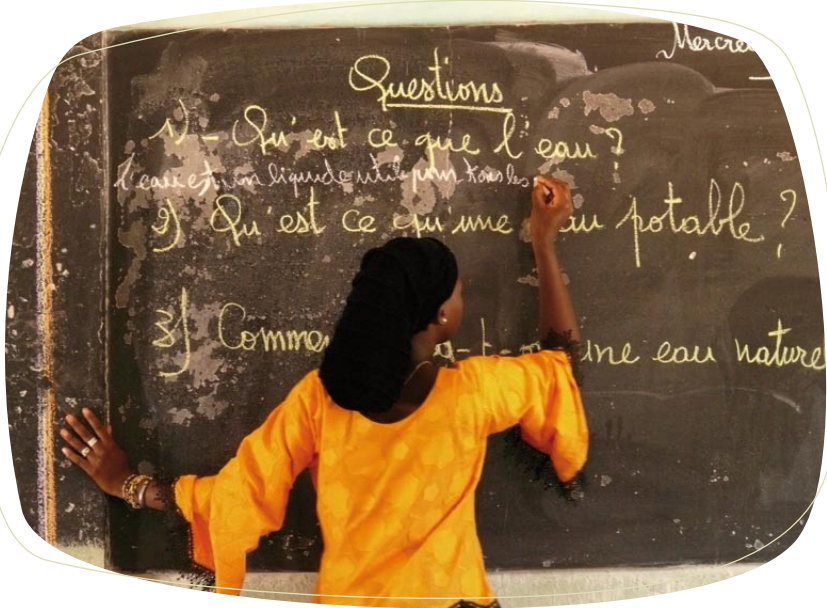 Mercre
Questions
1) - Qu'est ce que l'eau ?
L'eau est un liquide utile pour tous les
2) Qu'est ce qu'une eau potable ?
3) Comme -t- une eau nature